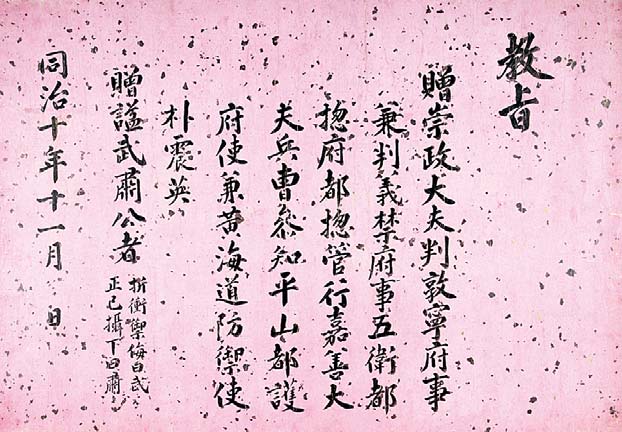 教旨
贈崇政大夫判敦寧府事
兼判義禁府事五衛都
揔府都揔管行嘉善大
夫兵曹參知平山都護
府使兼黃海道防禦使
朴震英
贈諡武肅公者
折衝禦侮曰武
正己攝下曰肅
同治十年十一月 日